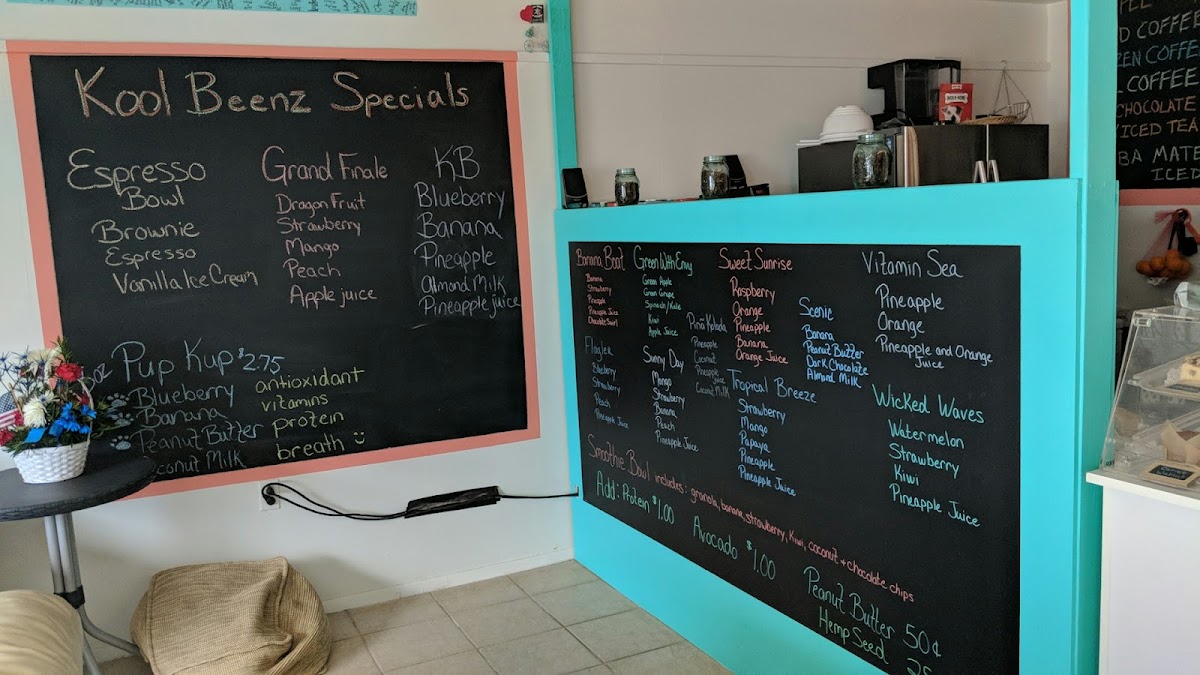 Kool Beenz Specials
Espresso
Bowl
Brownie
Espresso
Vanilla Ice Cream
Grand Finale
Dragon Fruit
Strawberry
Mango
Peach
Apple juice
KB
Blueberry
Banana
Pineapple
Almond Milk
Pineapple juice
oz Pup Kup $2.75
Blueberry
Banana
Peanut Butter
Coconut Milk
antioxidant
vitamins
protein
breath
Banana Boat
Banana
Strawberry
Pineapple
Pineapple Juice
Chocolate Swirl
Green With Envy
Green Apple
Green Grape
Spinach/Kale
Kiwi
Apple Juice
Sweet Sunrise
Raspberry
Orange
Pineapple
Banana
Orange Juice
Vitamin Sea
Pineapple
Orange
Pineapple and Orange
Juice
Flagler
Blueberry
Strawberry
Peach
Pineapple Juice
Sunny Day
Mango
Strawberry
Banana
Peach
Pineapple Juice
Pina Kolada
Pineapple
Coconut
Pineapple
juice
Coconut Milk
Scenic
Banana
Peanut Butter
Dark Chocolate
Almond Milk
Tropical Breeze
Strawberry
Mango
Papaya
Pineapple
Pineapple Juice
Wicked Waves
Watermelon
Strawberry
Kiwi
Pineapple Juice
Smoothie Bowl includes: granola, banana, strawberry, kiwi, coconut + chocolate chips
Add: Protein $1.00
Avocado $1.00
Peanut Butter 50¢
Hemp Seed
D COFFEE
ZEN COFFE
COFFEE
CHOCOLATE
ICED TEA
BA MATE
ICED